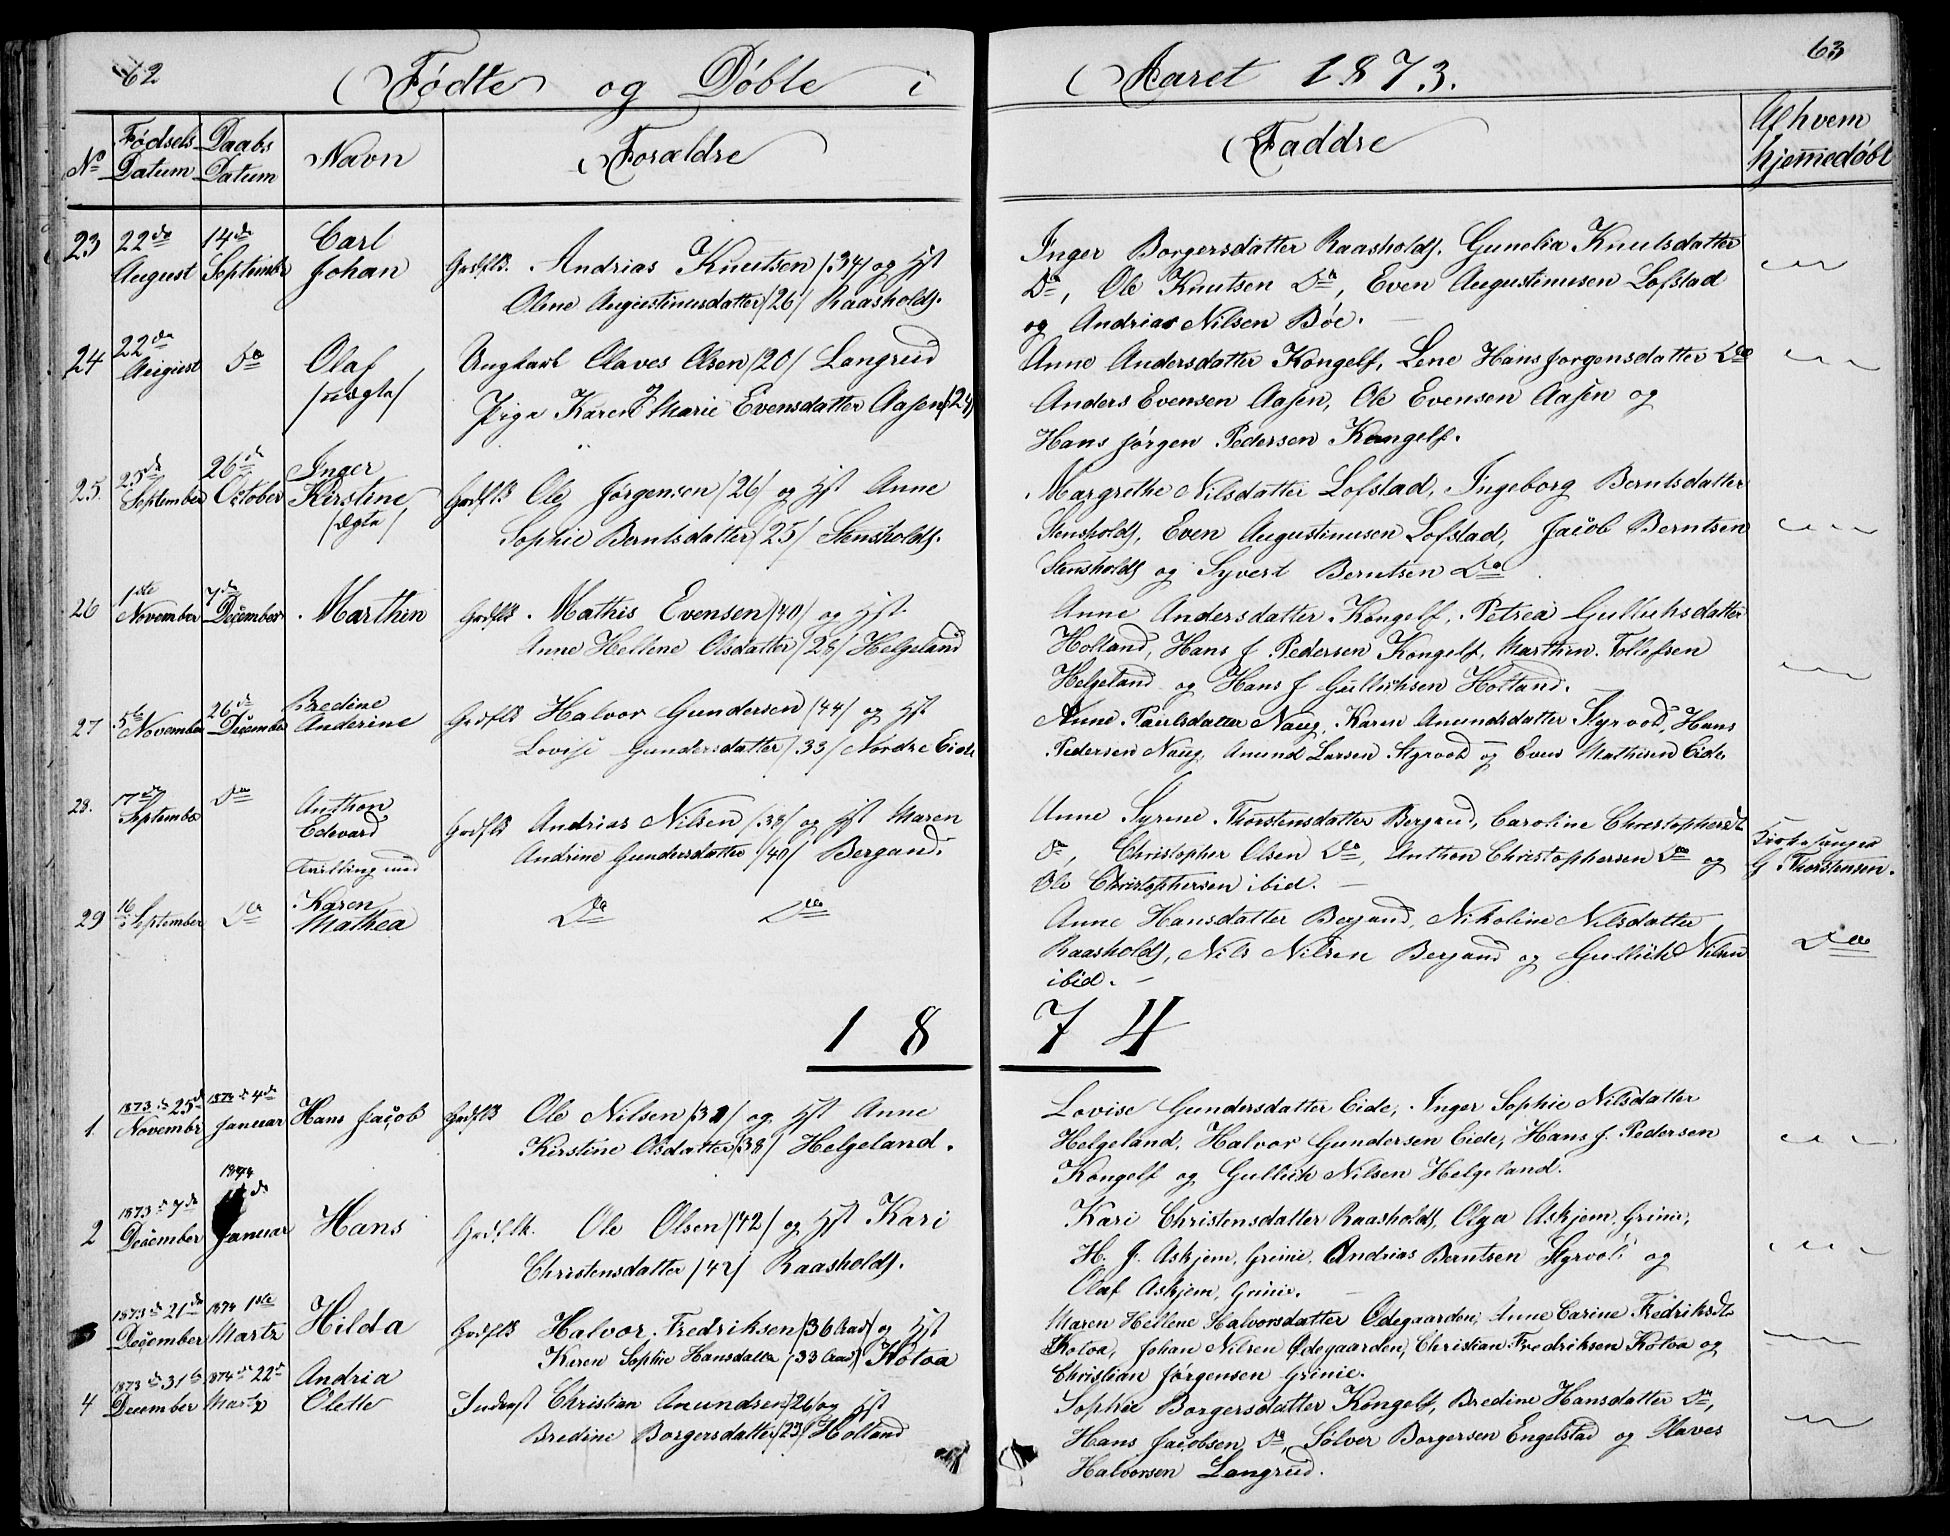 62
Fødte og Døbte i Aaret 1873.
63
No
Fødsels Datum
Daabs Datum
Navn
Forældre
Faddre
Af hvem hjemmedøbt
23 22de August 14de September Carl Johan
Grdflk. Andrias Knutsen /34/ og Hst
Oline Augustinusdatter /26/ Raasholdf.
Inger Borgersdatter Raasholdf. Gunelia Knutsdatter
Do, Ole Knutsen Do, Even Augustinusen Lofstad
og Andrias Nilsen Böe.
24 22de August Do Olaf /uægte/
Ungkarl Olaves Olsen /20/ Langrud
Pige Karen Marie Evensdatter Aasen /24/
Anne Andersdatter Kongelf, Lene Hansjorgensdatter Do
Anders Evensen Aasen, Ole Evensen Aasen og
Hans Jörgen Pedersen Kongelf.
25. 25de September 26de October Inger Kirstine /ægte/
Grdflk Ole Jørgensen /26/ og Hst Anne
Sophie Berntsdatter /25/ Stensholdf.
Margrethe Nilsdatter Lofstad, Ingeborg Berntsdatter
Stensholdf, Even Augustinusen Lofstad, Jacob Berntsen
Stensholdf og Syvert Berntsen Do
26 1ste November 7de December Marthin
Grdflk. Mathis Evensen /40/ og Hst.
Anne Hellene Olsdatter /28/ Helgeland
Anne Andersdatter Kongelf, Petrea Gulliksdatter
Holtand, Hans J. Pedersen Kongelf, Marthin Tollefsen
Helgeland og Hans J Gulliksen Holtand.
27 5te November 26de December Bredine Anderine
Grdflk Halvor Gundersen /44/ og Hst
Lovise Gundersdatter /33/ Nordre Eide
Anne Paulsdatter Naug, Karen Amundsdatter Styrvold, Hans
Pedersen Naug, Amund Larsen Styrvold og Even Mathisen Eide
28. 17de September Do Anthon Edevard Tvilling med
Grdflk Andrias Nilsen /38/ og Hst Maren
Andrine Gundersdatter /40/ Bergand.
Anne Syrene Thorstensdatter Bergand, Caroline Christophersdt
Do, Christopher Olsen Do, Anthon Christophersen Do og
Ole Christophersen ibid.
Kirkesanger G Thorstensen.
29 16de September Do Karen Mathea
Do Do
Anne Hansdatter Bergand, Nikoline Nilsdatter
Raasholdf, Nils Nilsen Bergand og Gullich Nilsen
ibid.
Do
1874
1. 1873 de 25de Novembr 1874 de 4de Januar Hans Jacob
Grdflk Ole Nilsen /31/ og Hst Anne
Kirstine Olsdatter /38/ Helgeland.
Lovise Gundersdatter Eide, Inger Sophie Nilsdatter
Helgeland, Halvor Gundersen Eide, Hans J. Pedersen
Kongelf og Gullich Nilsen Helgeland.
2 1873 de 7de December 1874 Januar Hans
Grdflk. Ole Olsen /42/ og Hst Kari
Christensdatter /42/ Raasholdf.
Kari Christensdatter Raasholdf, Olga Askjem, Grinie,
H. J. Askjem, Grinie, Andrias Berntsen Styrvold og
Olaf Askjem, Grinie.
3 1873 de 21de December 1874 1ste Martz Hilda
Grdflk Halvor Fredriksen /36 Aar/ og Hst
Karen Sophie Hansdatter /33 Aar/ Kotoa
Maren Hellene Halvorsdatter Ødegaarden, Anne Carine Fredriksdt
Kotoa, Johan Nilsen Ødegaarden, Christian Fredriksen Kotoa og
Christian Jørgensen Grinie.
4 1873 de 31te December 1874 de 22de Martz Andria Olette
Inderst Christian Amundsen /26/ og Hst
Bredine Borgersdatter /23/ Holtand
Sophie Borgersdatter Kongelf, Bredine Hansdatter Do,
Hans Jacobsen Do, Sølver Borgersen Engelstad og Olaves
Halvorsen Langrud.